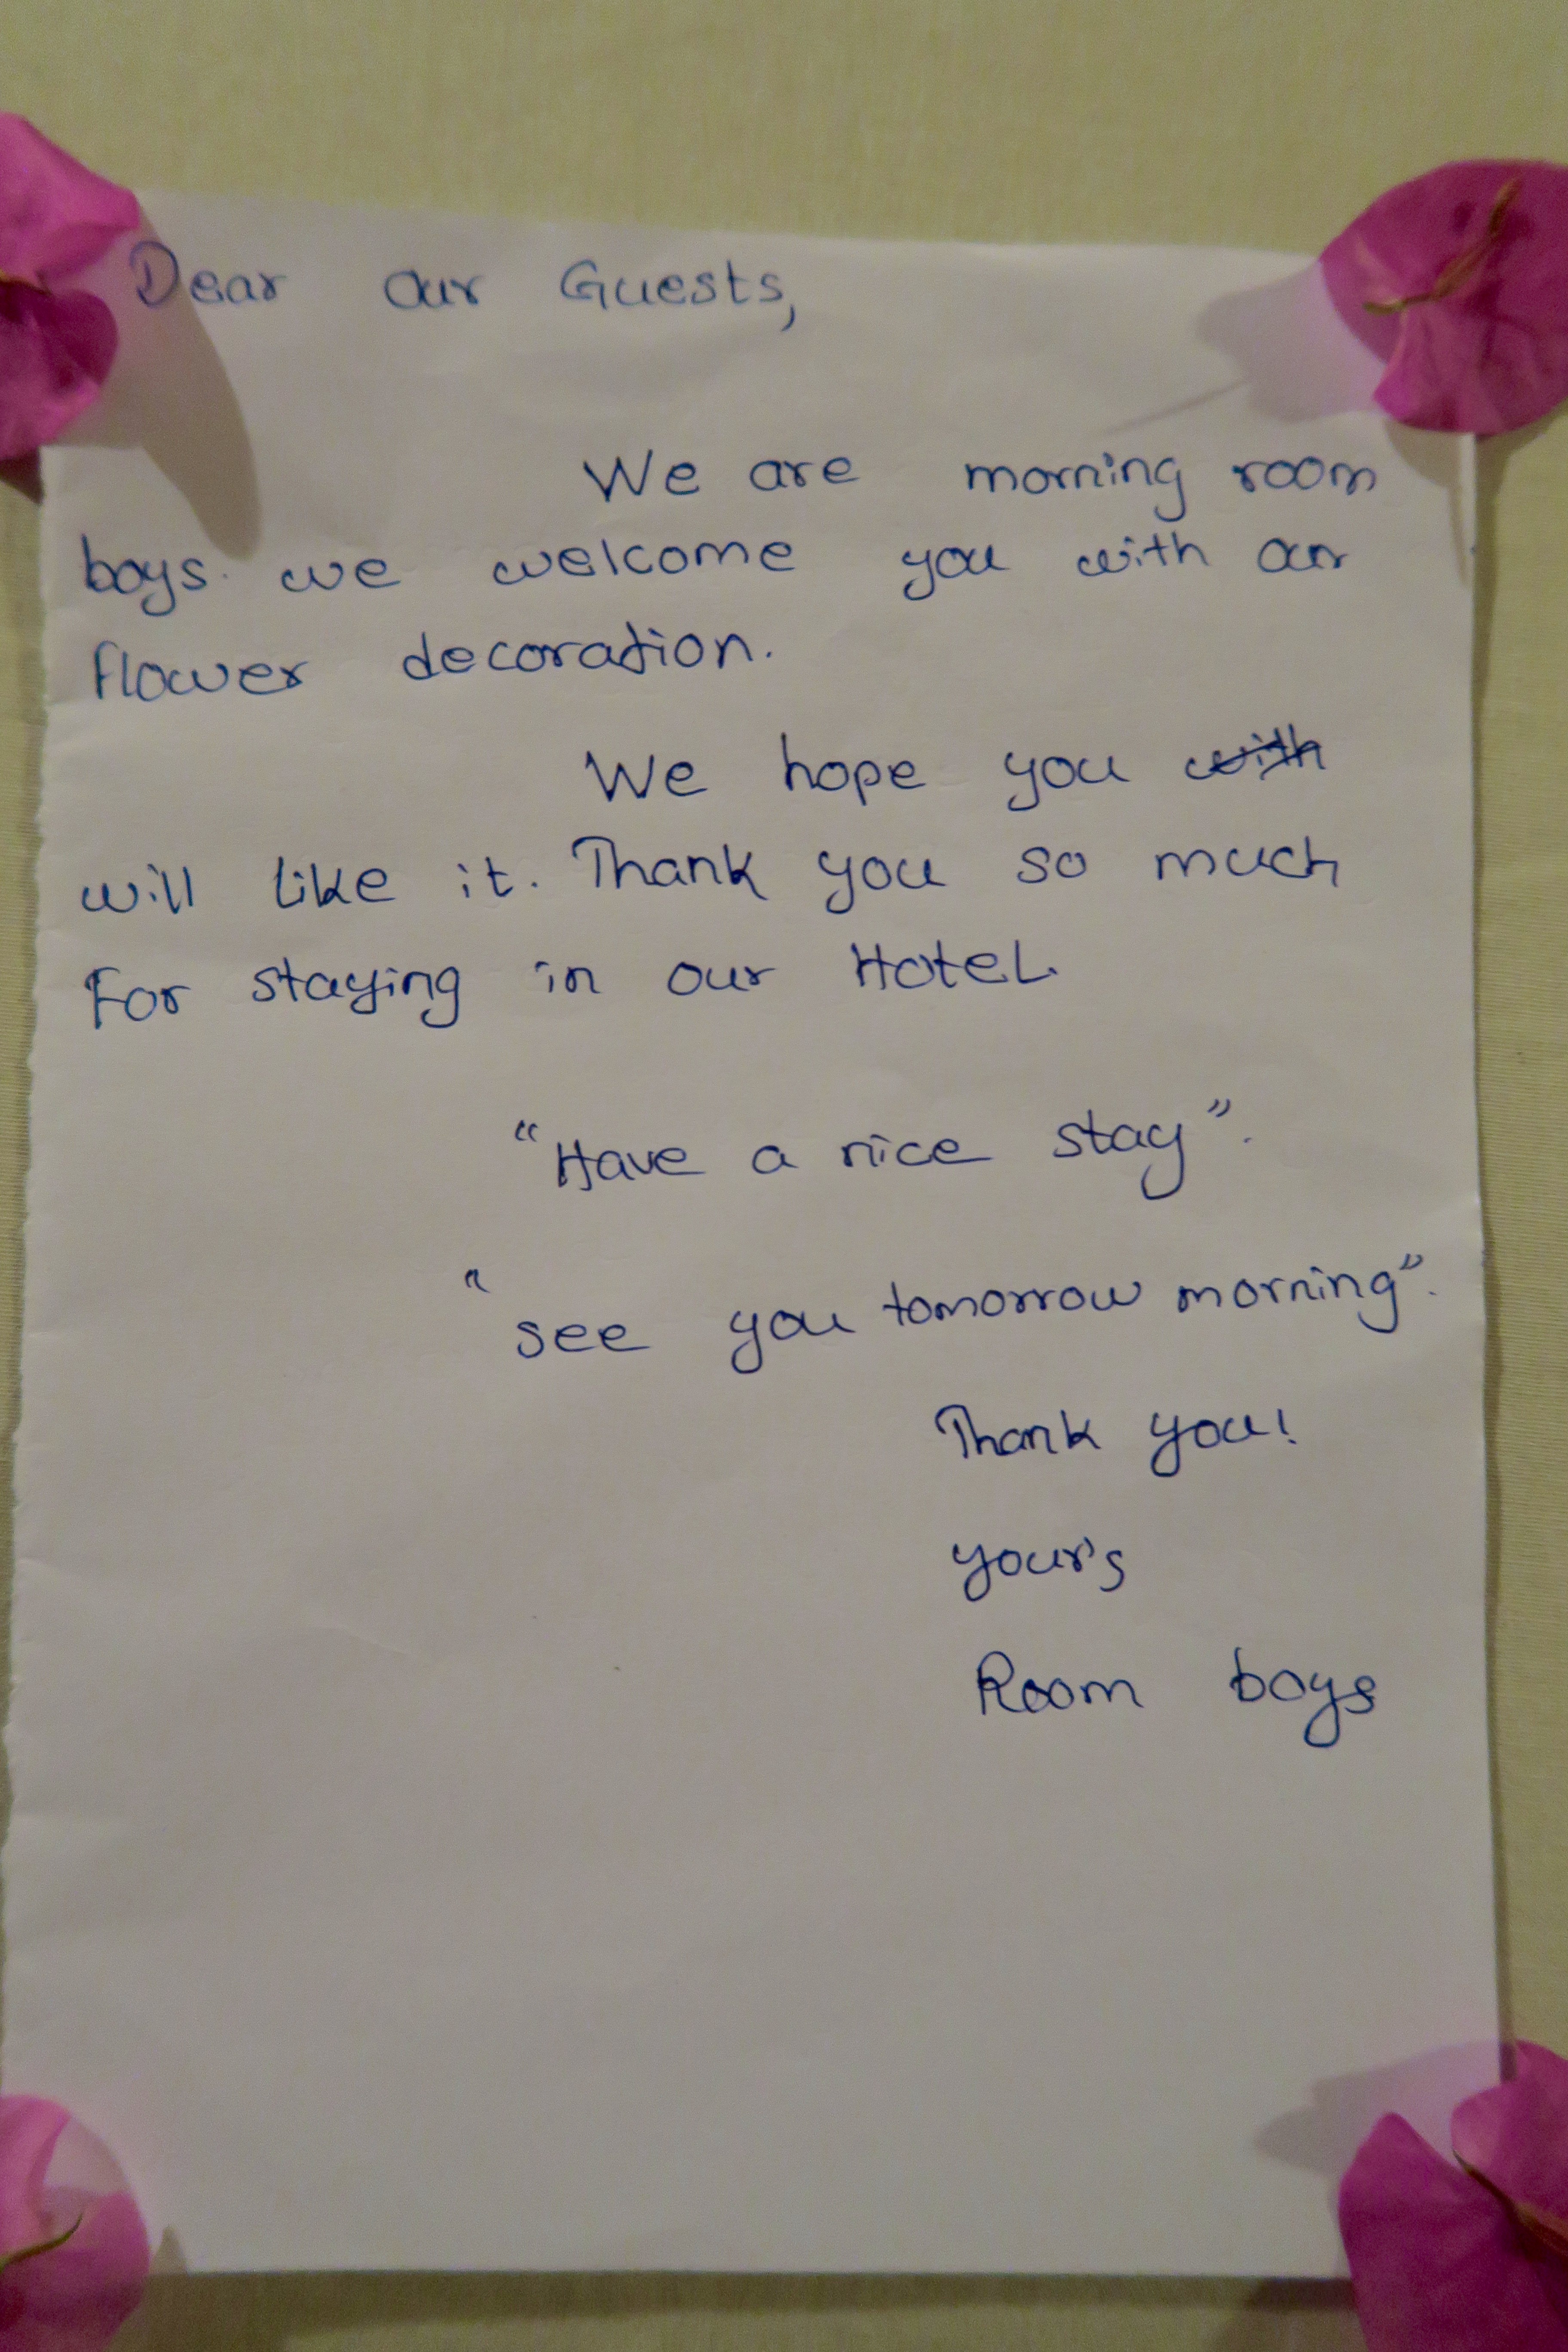 Dear our Guests,
We are morning room
boys. we welcome you with our
flower decoration.
We hope you with
will like it. Thank you so much
For staying in our Hotel.
"Have a nice stay".
"see you tomorrow morning".
Thank you!
your's
Room boys